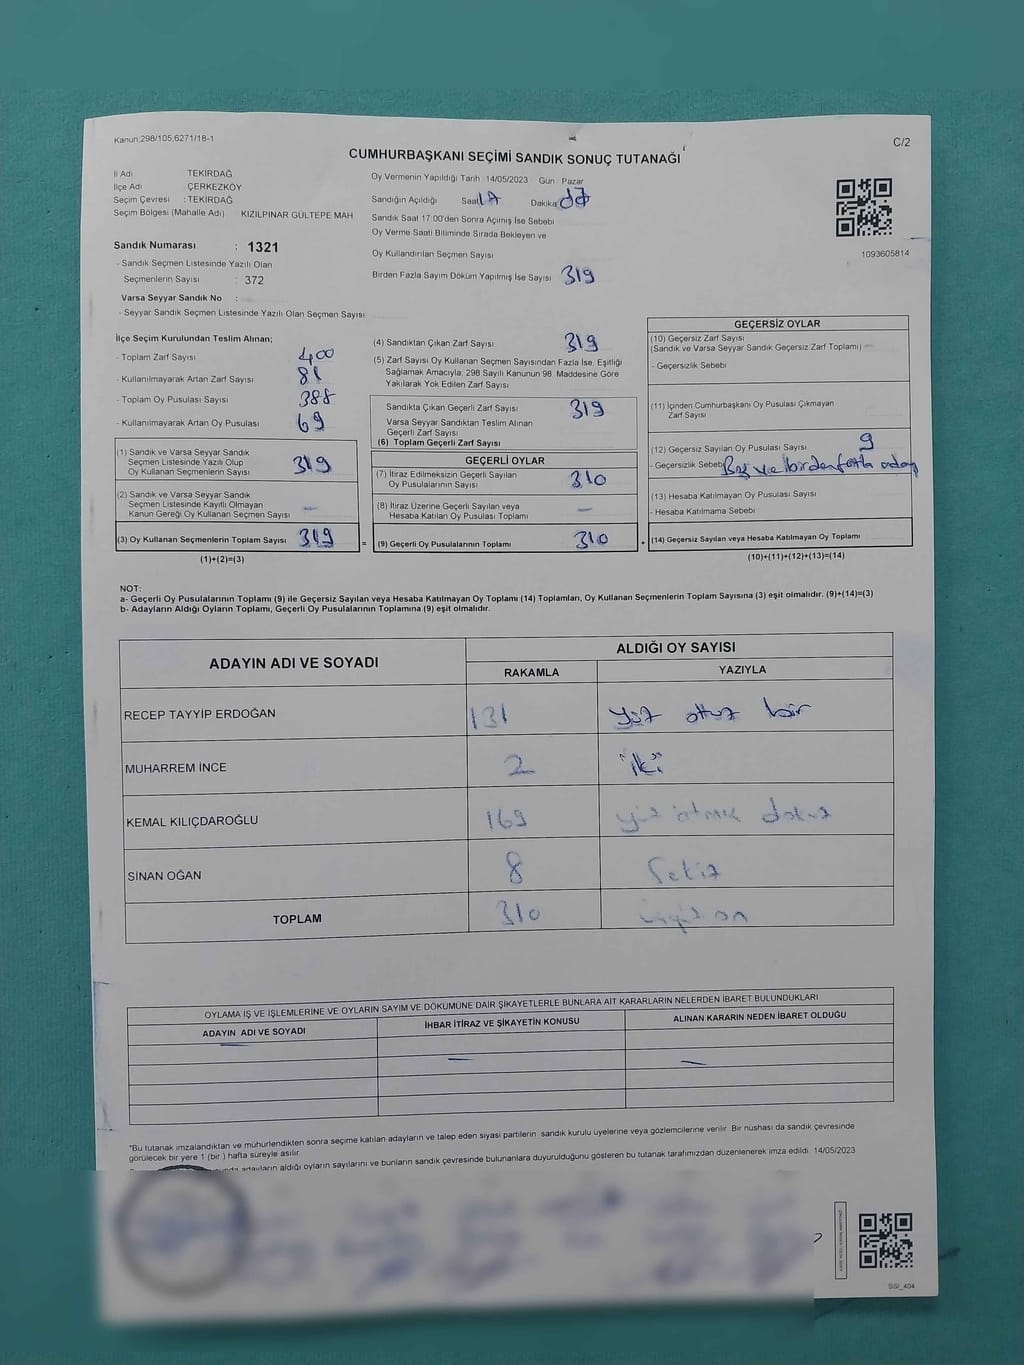 Kanun;298/105;6271/18-1
C/2
CUMHURBAŞKANI SEÇİMİ SANDIK SONUÇ TUTANAĞI
İl Adı TEKİRDAĞ
İlçe Adı ÇERKEZKÖY
Seçim Çevresi : TEKİRDAĞ
Seçim Bölgesi (Mahalle Adı) KIZILPINAR GÜLTEPE MAH
Sandık Numarası : 1321
- Sandık Seçmen Listesinde Yazılı Olan
Seçmenlerin Sayısı : 372
Varsa Seyyar Sandık No :
- Seyyar Sandık Seçmen Listesinde Yazılı Olan Seçmen Sayısı
Oy Vermenin Yapıldığı Tarih 14/05/2023 Gün Pazar
Sandığın Açıldığı Saat Dakika
Sandık Saat 17:00'den Sonra Açımış İse Sebebi
Oy Verme Saati Bitiminde Sırada Bekleyen ve
Oy Kullandırılan Seçmen Sayısı
Birden Fazla Sayım Döküm Yapılmış İse Sayısı 319
1093605814
İlçe Seçim Kurulundan Teslim Alınan;
- Toplam Zarf Sayısı 400
- Kullanılmayarak Artan Zarf Sayısı 81
- Toplam Oy Pusulası Sayısı 388
- Kullanılmayarak Artan Oy Pusulası 69
(1) Sandık ve Varsa Seyyar Sandık
Seçmen Listesinde Yazılı Olup
Oy Kullanan Seçmenlerin Sayısı 319
(2) Sandık ve Varsa Seyyar Sandık
Seçmen Listesinde Kayıtlı Olmayan
Kanun Gereği Oy Kullanan Seçmen Sayısı –
(3) Oy Kullanan Seçmenlerin Toplam Sayısı 319
(1)+(2)=(3)
(4) Sandıktan Çıkan Zarf Sayısı 319
(5) Zarf Sayısı Oy Kullanan Seçmen Sayısından Fazla İse, Eşitliği
Sağlamak Amacıyla, 298 Sayılı Kanunun 98. Maddesine Göre
Yakılarak Yok Edilen Zarf Sayısı
Sandıkta Çıkan Geçerli Zarf Sayısı 319
Varsa Seyyar Sandıktan Teslim Alınan
Geçerli Zarf Sayısı
(6) Toplam Geçerli Zarf Sayısı
GEÇERLİ OYLAR
(7) İtiraz Edilmeksizin Geçerli Sayılan
Oy Pusulalarının Sayısı 310
(8) İtiraz Üzerine Geçerli Sayılan veya
Hesaba Katılan Oy Pusulası Toplamı –
= (9) Geçerli Oy Pusulalarının Toplamı 310
GEÇERSİZ OYLAR
(10) Geçersiz Zarf Sayısı
(Sandık ve Varsa Seyyar Sandık Geçersiz Zarf Toplamı)
- Geçersizlik Sebebi
(11) İçinden Cumhurbaşkanı Oy Pusulası Çıkmayan
Zarf Sayısı
(12) Geçersiz Sayılan Oy Pusulası Sayısı 9
- Geçersizlik Sebebi Boş ve birden fazla aday
(13) Hesaba Katılmayan Oy Pusulası Sayısı
- Hesaba Katılmama Sebebi
+ (14) Geçersiz Sayılan veya Hesaba Katılmayan Oy Toplamı
(10)+(11)+(12)+(13)=(14)
NOT:
a- Geçerli Oy Pusulalarının Toplamı (9) ile Geçersiz Sayılan veya Hesaba Katılmayan Oy Toplamı (14) Toplamları, Oy Kullanan Seçmenlerin Toplam Sayısına (3) eşit olmalıdır. (9)+(14)=(3)
b- Adayların Aldığı Oyların Toplamı, Geçerli Oy Pusulalarının Toplamına (9) eşit olmalıdır.
ADAYIN ADI VE SOYADI ALDIĞI OY SAYISI
RAKAMLA YAZIYLA
RECEP TAYYİP ERDOĞAN 131 yüz otuz bir
MUHARREM İNCE 2 "iki"
KEMAL KILIÇDAROĞLU 169 yüz atmış dokuz
SİNAN OĞAN 8 Sekiz
TOPLAM 310 üçyüz on
OYLAMA İŞ VE İŞLEMLERİNE VE OYLARIN SAYIM VE DÖKÜMÜNE DAİR ŞİKAYETLERLE BUNLARA AİT KARARLARIN NELERDEN İBARET BULUNDUKLARI
ADAYIN ADI VE SOYADI İHBAR İTİRAZ VE ŞİKAYETİN KONUSU ALINAN KARARIN NEDEN İBARET OLDUĞU
– – –
*Bu tutanak imzalandıktan ve mühürlendikten sonra seçime katılan adayların ve talep eden siyasi partilerin sandık kurulu üyelerine veya gözlemcilerine verilir. Bir nüshası da sandık çevresinde
görülecek bir yere 1 (bir) hafta süreyle asılır.
adayların aldığı oyların sayılarını ve bunların sandık çevresinde bulunanlara duyurulduğunu gösteren bu tutanak tarafımızdan düzenlenerek imza edildi. 14/05/2023
SSI_404